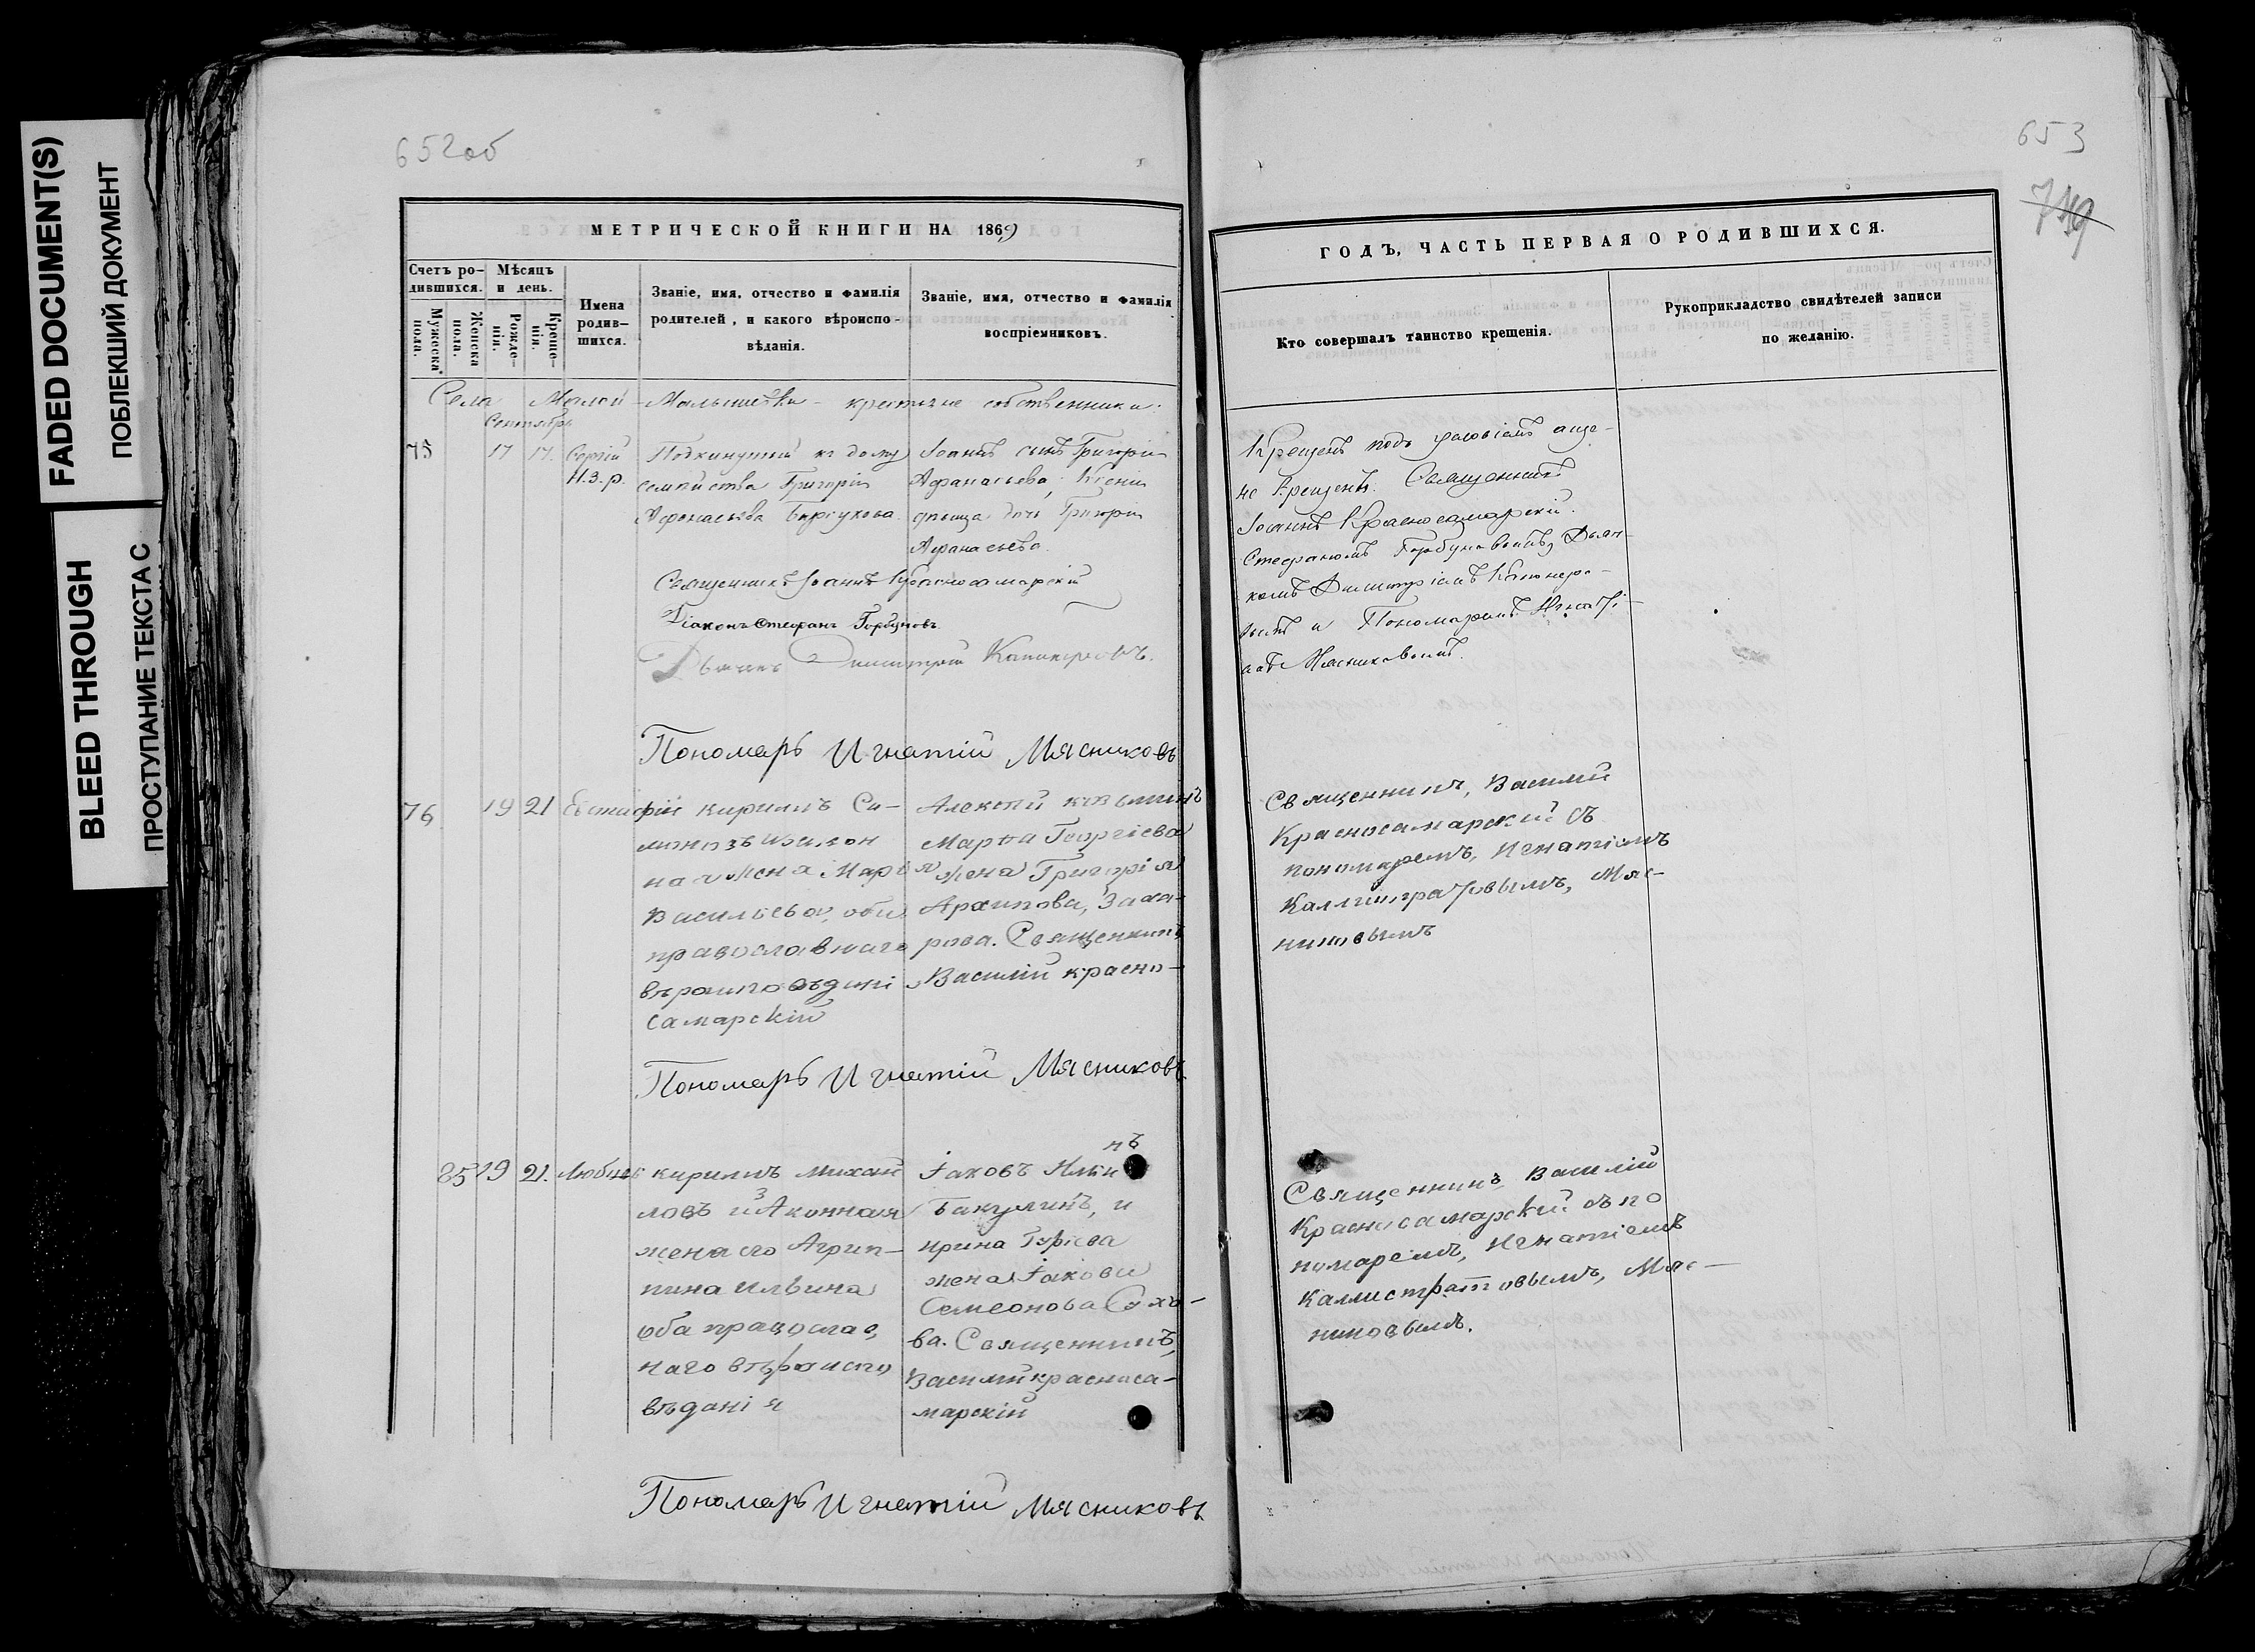 FADED DOCUMENT(S)
ПОБЛЕКШИЙ ДОКУМЕНТ
BLEED THROUGH
ПРОСТУПАНИЕ ТЕКСТА С
652об
МЕТРИЧЕСКОЙ КНИГИ НА 1869
Счетъ ро-
дившихся.
Мѣсяцъ
и день.
Мужеска
пола.
Женска
пола.
Рожде-
нія.
Креще-
нія.
Имена
родив-
шихся.
Званіе, имя, отчество и фамилія
родителей, и какого вѣроиспо-
вѣданія.
Званіе, имя, отчество и фамилія
воспріемниковъ.
Села Малой Малышевки
собственники.
Сентябрь
75
17
17.
Сергій
Н.З.р.
Подкинутый къ дому
семейства Григорія
Афонасьева
Іоаннъ сынъ Григорія
Афанасьева,
дѣвица дочь Григорія
Афанасьева.
Священникъ Іоаннъ Красносамарскій
Діаконъ Стефанъ Горбуновъ
Дьячекъ Димитрій
Пономарь Игнатій Мясниковъ
76
19
21
Евстафій
кириллъ Си-
моновъ
ная жена Марія
Васильева, оба
православнаго
самарскій
Алексій
Марѳа Георгіева
жена Григорія
Архипова, Заха-
рова. Священникъ
Василій красно-
Пономарь Игнатій Мясниковъ
85
19
21.
Любовь
кириллъ михай
ловъ и Законная
жена его Агрип-
пина ильина
оба православ
наго вѣроиспо
вѣданія
нъ
Іаковъ
Бакулинъ, и
ирина Гурієва
жена Іакова
Семеонова
ва. Священникъ,
Василій красноса-
марскій
Пономарь Игнатій Мясниковъ
653
749
ГОДЪ, ЧАСТЬ ПЕРВАЯ О РОДИВШИХСЯ.
Кто совершалъ таинство крещенія.
Рукоприкладство свидѣтелей записи
по желанію.
Крещенъ подъ условіемъ аще-
не крещенъ. Священникъ
Іоаннъ Красносамарскій.
Стефаномъ Горбуновымъ, Дьяч-
комъ Димитріемъ
вымъ и Пономаремъ Игнаті-
емъ Мясниковымъ.
Священникъ, Василій
Красносамарскій съ
пономаремъ, Игнатіемъ
Каллистратовымъ, Мяс-
никовымъ
Священникъ, Василій
Красносамарскій съ по
номаремъ, Игнатіемъ
Каллистратовымъ, Мяс-
никовымъ.